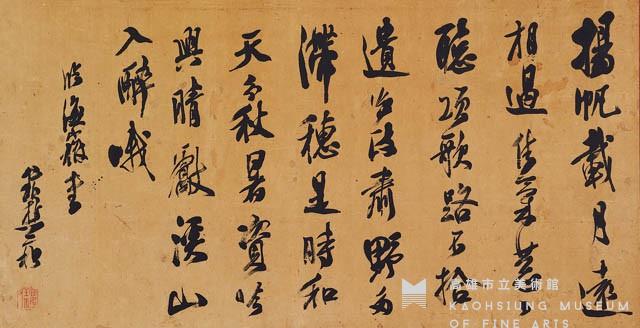 揚帆載月遠
相過佳氣葱〻
聽頌歌路不拾
遺知政肅野多
滯穗是時和
天分秋暑資吟
興晴獻溪山
入醉哦
臨海嶽書
高雄市立美術館
KAOHSIUNG MUSEUM
OF FINE ARTS